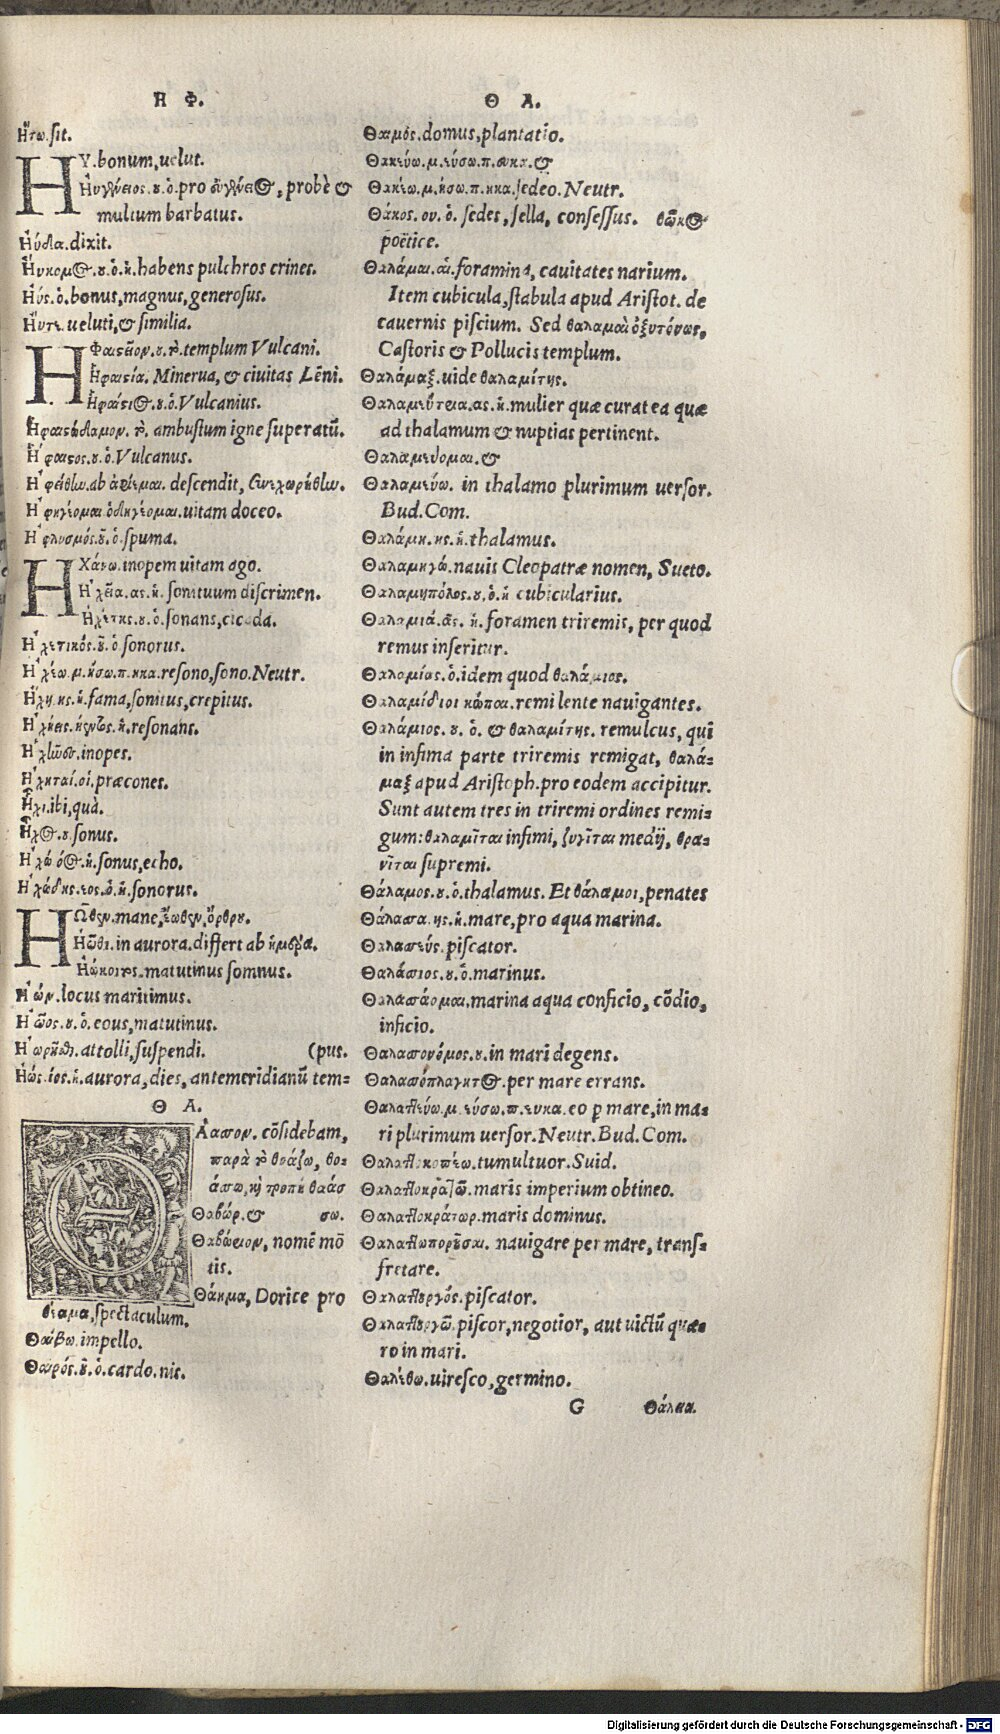 Η Φ.
Ἤτω. sit.
ΗΥ. bonum, uelut.
Ἠϋγένειος. ου. ὁ. pro εὐγένειος, probè &
multum barbatus.
Ηὔδα. dixit.
Ἠΰκομος. ου. ὁ. ἡ. habens pulchros crines.
Ἠΰς. ὁ. bonus, magnus, generosus.
Ἠΰτε. ueluti, & similia.
ΗΦαιστεῖον. ου. τὸ. templum Vulcani.
Ἡφαιστία. Minerua, & ciuitas Lēni.
Ἡφαίστιος. ου. ὁ. Vulcanius.
Ἡφαιστόδαμον. τὸ. ambustum igne superatū.
Ἥφαιστος. ου. ὁ. Vulcanus.
descendit,
uitam doceo.
Ἠφλυσμός. οῦ. ὁ. spuma.
ΗΧάνω. inopem uitam ago.
Ἠχεῖα. ας. ἡ. sonituum discrimen.
Ἠχέτης. ου. ὁ. sonans, cicada.
Ἠχετικός. οῦ. ὁ. sonorus.
Ἠχέω. μ. ήσω. π. ηκα. resono, sono. Neutr.
Ἤχη. ης. ἡ. fama, sonitus, crepitus.
Ἠχήεις. ήεντος. ἡ. resonans.
inopes.
Ἠχηταί. οἱ. præcones.
Ἧχι. ibi, quà.
Ἦχος. ου sonus.
Ἠχώ όος. ἡ. sonus, echo.
Ἠχώδης. εος. ὁ. ἡ. sonorus.
ΗΩθεν. mane, ἕωθεν, ὄρθρου.
Ἠῶθι. in aurora. differt ab ἡμέρα.
Ἠώκοιτος. matutinus somnus.
Ἠών. locus maritimus.
Ἠῶος. ου. ὁ. eous, matutinus.
attolli, suspendi. (pus.
Ἠώς. ίος. ἡ. aurora, dies, antemeridianū tem=
Θ Α.
ΘΑασσον. cōsidebam,
παρὰ τὸ θοάζω, θοά=
άσω, καὶ τροπῇ θαάσ
Θαβώρ. & σω.
Θαβώριον, nomē mō
tis.
Θάημα, Dorice pro
θέαμα, spectaculum.
Θαίβω. impello.
Θαιρός. οῦ. ὁ. cardo. nis.
Θ Α.
Θαιμός. domus, plantatio.
Θακεύω. μ. εύσω. π. ευκα. &
Θακέω. μ. ήσω. π. ηκα. sedeo. Neutr.
Θάκος. ου. ὁ. sedes, sella, consessus. θῶκος
poëtice.
Θαλάμαι. αἱ. foramina, cauitates narium.
Item cubicula, stabula apud Aristot. de
cauernis piscium. Sed θαλαμαὶ ὀξυτόνως,
Castoris & Pollucis templum.
Θαλάμαξ. uide θαλαμίτης.
Θαλαμεύτρια. ας. ἡ. mulier quæ curat ea quæ
ad thalamum & nuptias pertinent.
Θαλαμεύομαι. &
Θαλαμεύω. in thalamo plurimum uersor.
Bud. Com.
Θαλάμη. ης. ἡ. thalamus.
Θαλαμηγώ. nauis Cleopatræ nomen, Sueto.
Θαλαμηπόλος. ου. ὁ. ἡ cubicularius.
Θαλαμιά. ᾶς. ἡ. foramen triremis, per quod
remus inseritur.
Θαλαμίας. ὁ. idem quod θαλάμιος.
Θαλαμίδιοι κῶπαι. remi lente nauigantes.
Θαλάμιος. ου. ὁ. & θαλαμίτης. remulcus, qui
in infima parte triremis remigat, θαλά=
μαξ apud Aristoph. pro eodem accipitur.
Sunt autem tres in triremi ordines remi=
gum: θαλαμῖται infimi, ζυγῖται medij, θρα=
νῖται supremi.
Θάλαμος. ου. ὁ. thalamus. Et θάλαμοι, penates
Θάλασσα. ης. ἡ. mare, pro aqua marina.
Θαλασσεύς. piscator.
Θαλάσσιος. ου. ὁ. marinus.
Θαλασσάομαι. marina aqua conficio, cōdio,
inficio.
Θαλασσονόμος. ου. in mari degens.
Θαλασσόπλαγκτος. per mare errans.
Θαλαττεύω. μ. εύσω. π. ευκα. eo ꝑ mare, in ma=
ri plurimum uersor. Neutr. Bud. Com.
Θαλαττοκοπέω. tumultuor. Suid.
Θαλαττοκρατῶ. maris imperium obtineo.
Θαλαττοκράτωρ. maris dominus.
Θαλαττωποροῦσαι. nauigare per mare, trans=
fretare.
Θαλαττουργός. piscator.
Θαλαττουργῶ. piscor, negotior, aut uictū quæ=
ro in mari.
Θαλέθω. uiresco, germino.
G Θάλεια.
Digitalisierung gefördert durch die Deutsche Forschungsgemeinschaft - DFG